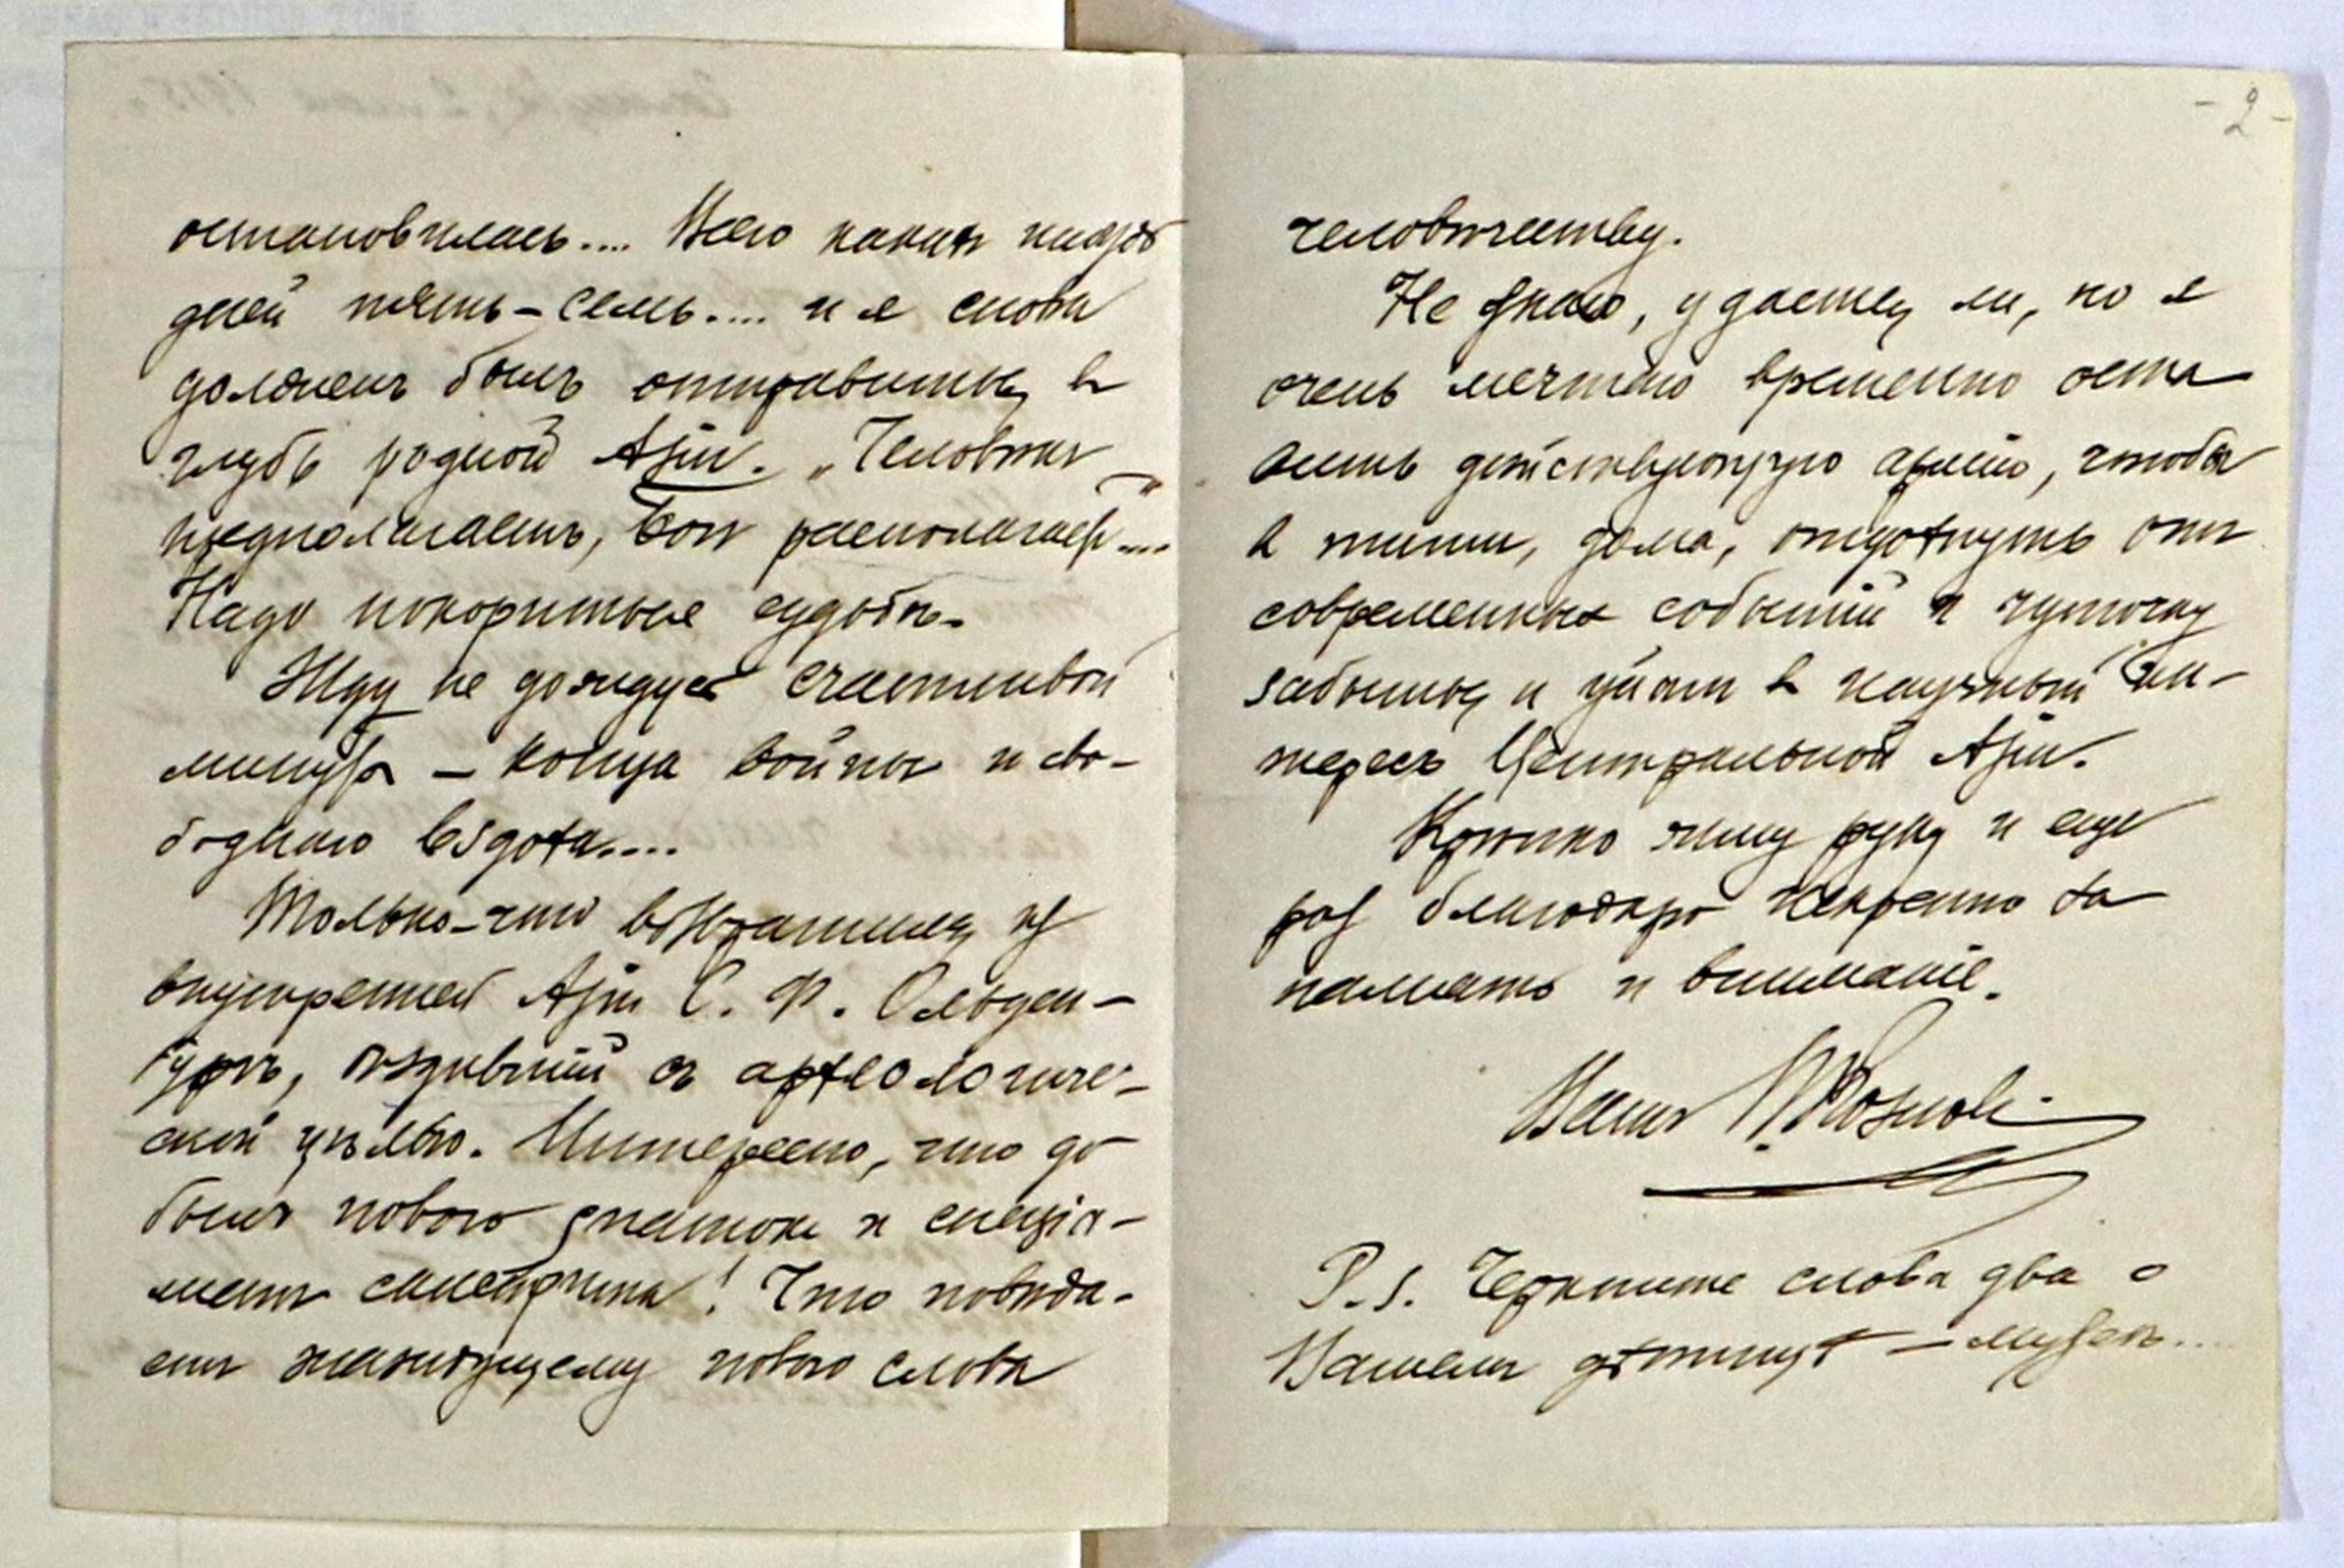 остановилась.... Всего какихъ нибудь
дней пять-семь.... и я снова
долженъ былъ отправиться въ
глубь родной Азіи. „Человѣкъ
предполагаетъ, Богъ располагаетъ"....
Надо покориться судьбѣ.
Жду не дождусь счастливой
минуты – конца войны и сво-
боднаго вздоха....
Только-что возвратился изъ
внутренней Азіи С. Ф. Ольден-
бургъ, ѣздившій съ археологиче-
ской цѣлью. Интересно, что до
былъ новаго знатокъ и спеціа-
листъ санскрита! Что повѣда-
етъ жаждущему новаго слова
- 2 -
человѣчеству.
Не знаю, удастся ли, но я
очень мечтаю временно оста
вить дѣйствующую армію, чтобы
въ тиши, дома, отдохнуть отъ
современныхъ событій и чуточку
забыться и уйти въ научный ин-
тересъ Центральной Азіи.
Крѣпко жму руку и еще
разъ благодарю искренно за
память и вниманіе.
Вашъ П. Козловъ.
P.S. Черкните слова два о
Вашемъ дѣтищѣ – музеѣ....